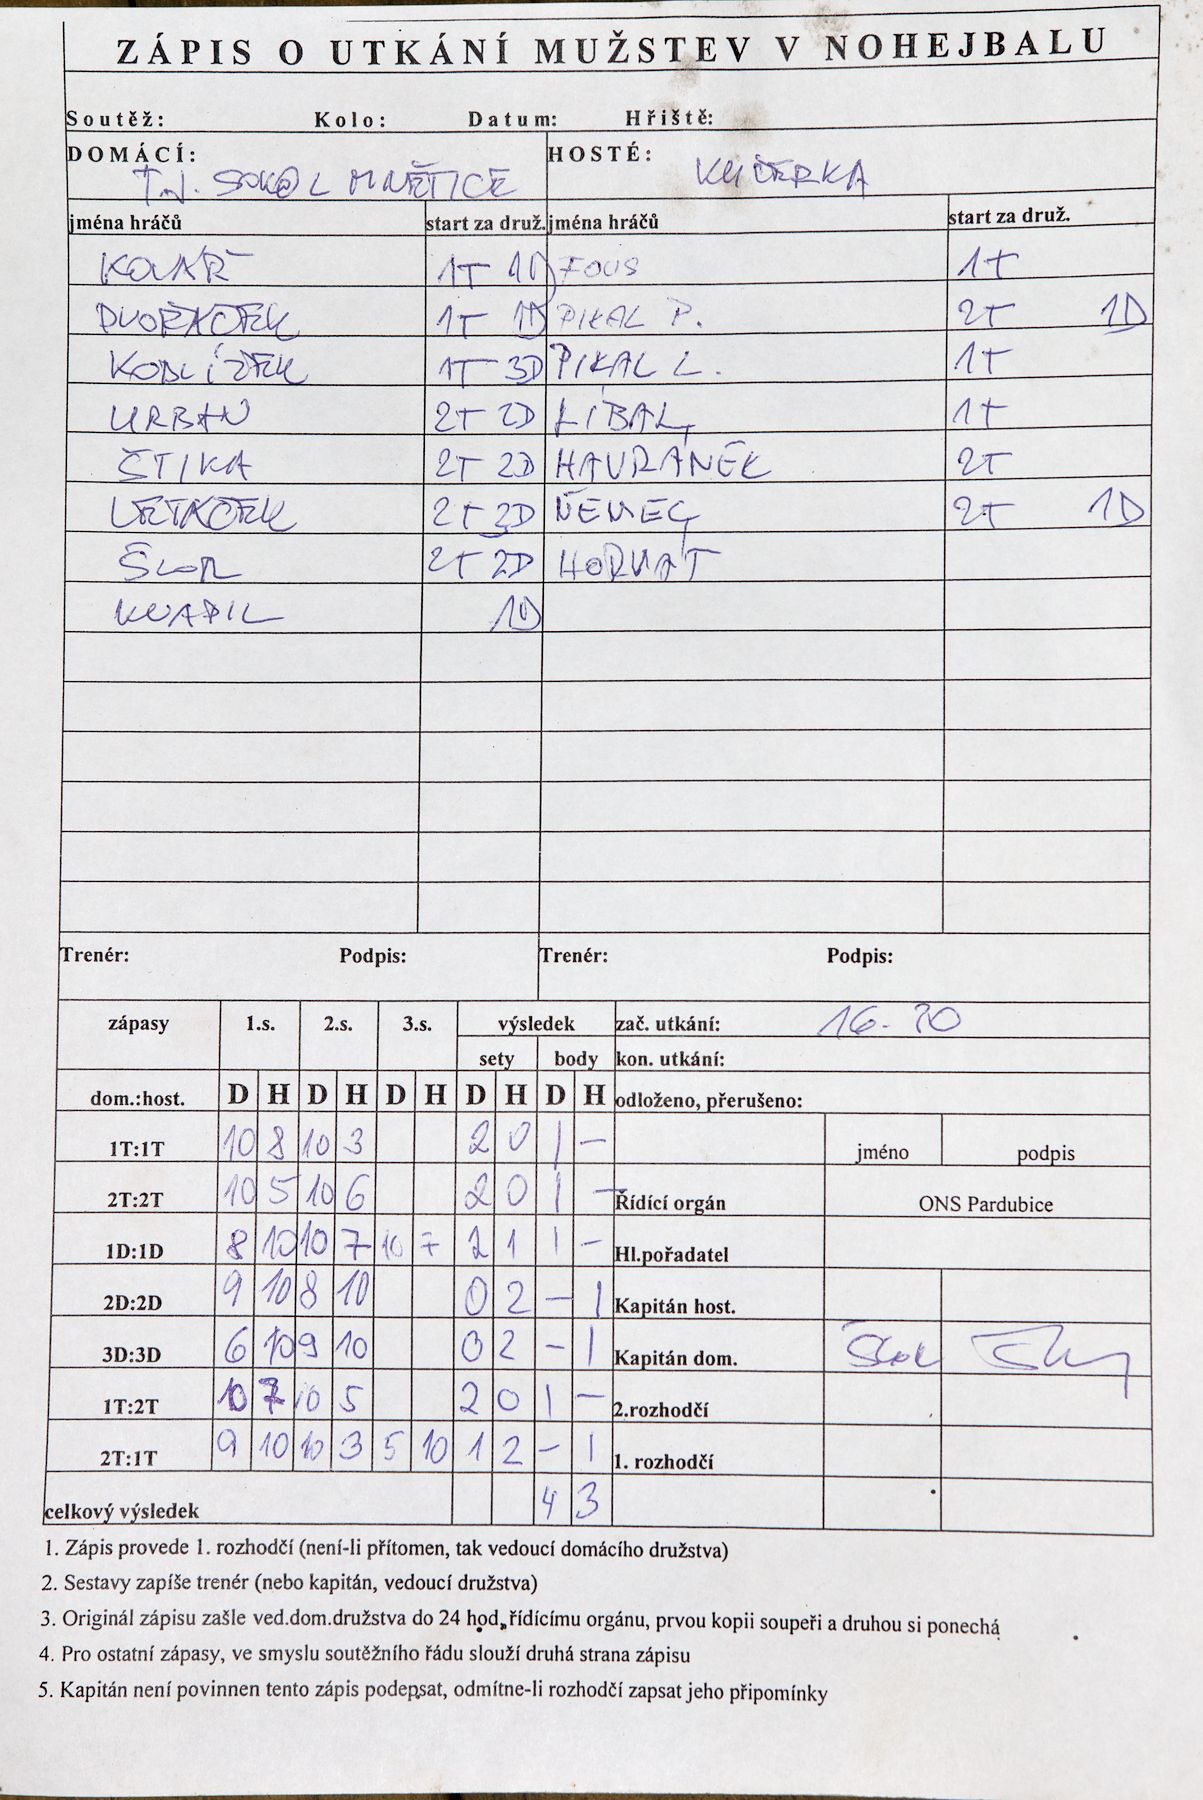 ZÁPIS O UTKÁNÍ MUŽSTEV V NOHEJBALU
Soutěž: Kolo: Datum: Hřiště:
DOMÁCÍ: HOSTÉ:
T.J. SOKOL MNĚTICE KUČERKA
jména hráčů start za druž. jména hráčů start za druž.
KOVÁŘ 1T 1D FOUS 1T
DVOŘÁČEK 1T 1D PIKAL P. 2T 1D
KOBLÍŽEK 1T 3D PIKAL L. 1T
URBAN 2T 2D LÍBAL 1T
ŠTIKA 2T 2D HAVRÁNEK 2T
2T 3D NĚMEC 2T 1D
ŠLOR 2T 2D HORVÁT
KVAPIL 1D
Trenér: Podpis: Trenér: Podpis:
zápasy 1.s. 2.s. 3.s. výsledek zač. utkání: 16.30
sety body kon. utkání:
dom.:host. D H D H D H D H D H odloženo, přerušeno:
1T:1T 10 8 10 3 2 0 1 – jméno podpis
2T:2T 10 5 10 6 2 0 1 – Řídící orgán ONS Pardubice
1D:1D 8 10 10 7 10 7 2 1 1 – Hl.pořadatel
2D:2D 9 10 8 10 0 2 – 1 Kapitán host.
3D:3D 6 10 9 10 0 2 – 1 Kapitán dom.
1T:2T 10 7 10 5 2 0 1 – 2.rozhodčí
2T:1T 9 10 10 3 5 10 1 2 – 1 1. rozhodčí
celkový výsledek 4 3
1. Zápis provede 1. rozhodčí (není-li přítomen, tak vedoucí domácího družstva)
2. Sestavy zapíše trenér (nebo kapitán, vedoucí družstva)
3. Originál zápisu zašle ved.dom.družstva do 24 hod, řídícímu orgánu, prvou kopii soupeři a druhou si ponechá
4. Pro ostatní zápasy, ve smyslu soutěžního řádu slouží druhá strana zápisu
5. Kapitán není povinnen tento zápis podepsat, odmítne-li rozhodčí zapsat jeho připomínky